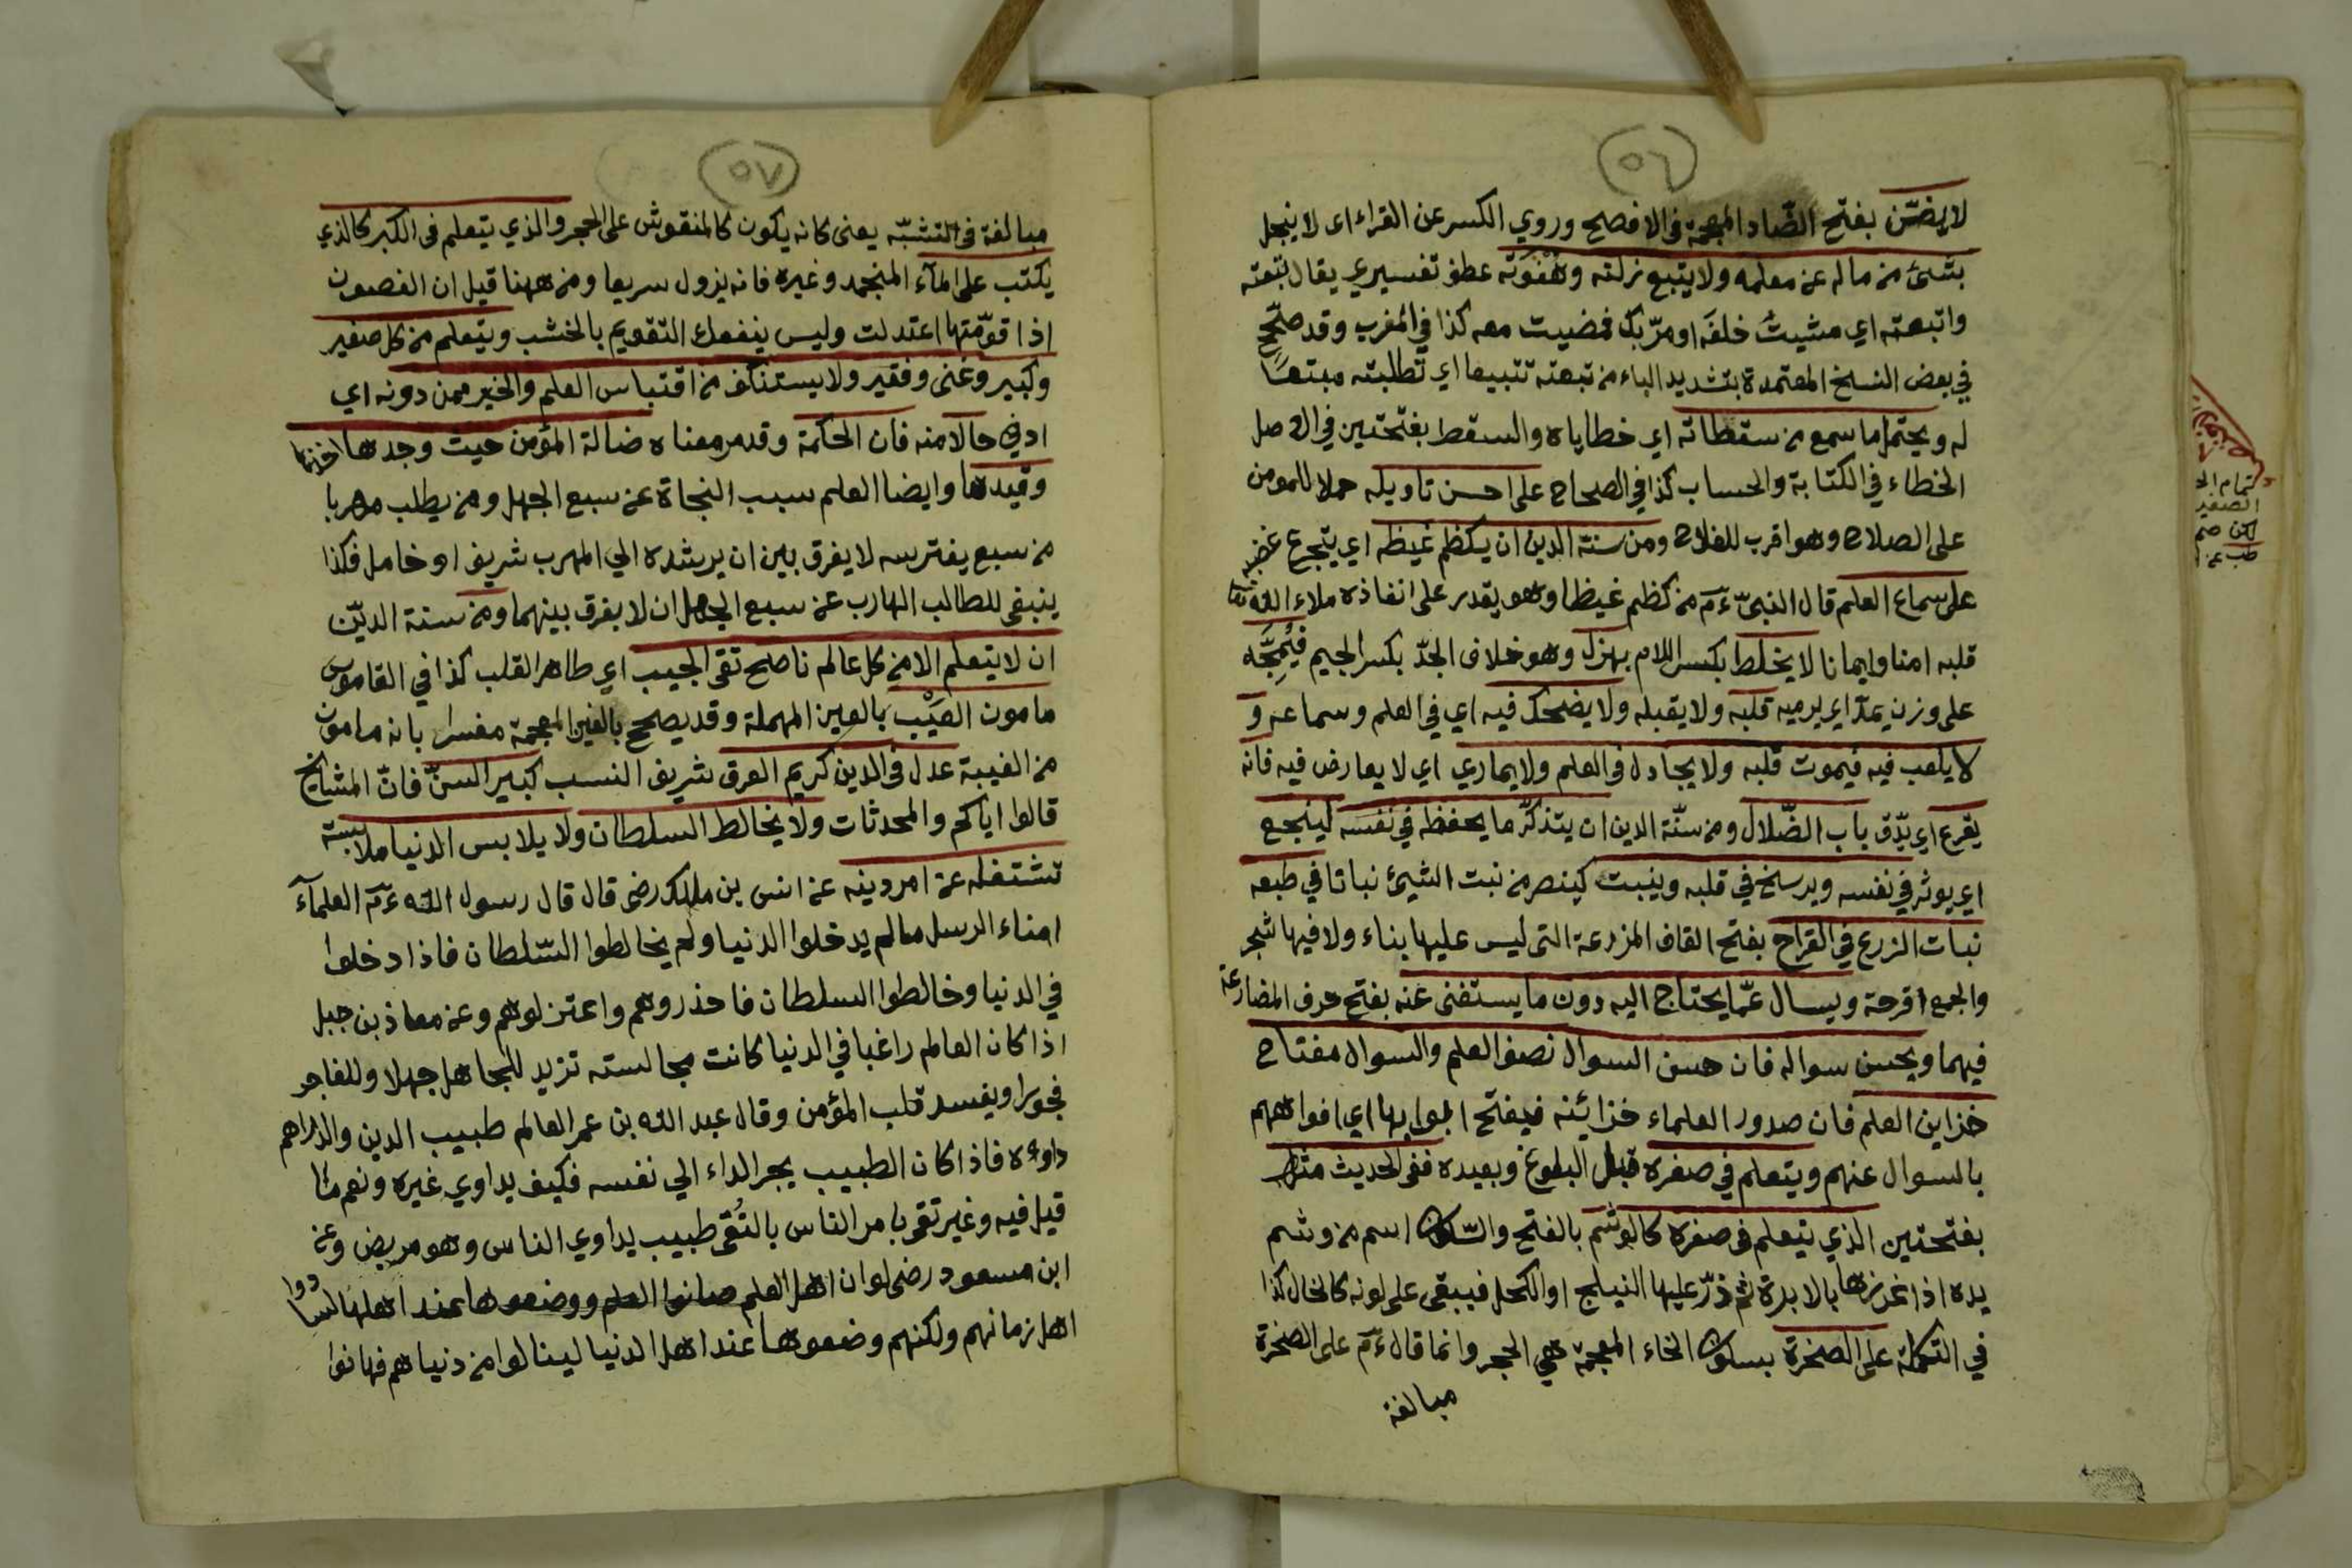 ٥٦
لا يضنّن بفتح الضّاد المعجمة في الافصح وروي الكسر عن القراء اى لا يبخل
بشئ من ماله عن معلمه ولا يتبع زلته وهَفْوَته عطف تفسيري يقال تبعته
واتبعته اي مشيتُ خلفَه او مرّ بك فمضيت معه كذا في المغرب وقد صحّح
في بعض النسخ المعتمدة بتشديد الباء من تبعته تتبيعا اي تطلبته متبعاً
له ويحتمل ما سمع من سقطاته اي خطاياه والسقط بفتحتين في الاصل
الخطاء في الكتابة والحساب كذا في الصحاح على احسن تاويله حملا للمومن
على الصلاح وهو اقرب للفلاح ومن سنة الدين ان يكظم غيظه اي يتجرع غضبه
على سماع العلم قال النبيّ ءمّ من كظم غيظا وهو يقدر على انفاذه ملاء الله تعا
قلبه امنا وايمانا لا يخلط بكسر اللام بهزل وهو خلاف الجدّ بكسر الجيم فيُمجَّه
على وزن يمدّ اي يرميه قلبه ولا يقبله ولا يضحك فيه اي في العلم وسماعه و
لا يلعب فيه فيموت قلبه ولا يجادل في العلم ولا يماري اي لا يعارض فيه فانه
يقرع اي يدّق باب الضّلال ومن سنّة الدين ان يتذكّر ما يحفظه في نفسه لينجع
اي يوثر في نفسه ويرسخ في قلبه وينبت كينصر من نبت الشيئ نباتا في طبعه
نبات الزرع في القراح بفتح القاف المزرعة التى ليس عليها بناء ولا فيها شجر
والجمع اقرحة ويسال عمّا يحتاج اليه دون ما يستغنى عنه بفتح حرف المضارعة
فيهما ويحسن سواله فان حسن السوال نصف العلم والسوال مفتاح
خزاين العلم فان صدور العلماء خزائنه فيفتح ابوابها اي افواههم
بالسوال عنهم ويتعلم في صغره قبل البلوغ وبعيده ففى الحديث مثل
بفتحتين الذي يتعلم فى صغره كالوشم بالفتح والسّكون اسم من وشم
يده اذا غرزها بالابرة ثم ذرّ عليها النيلج او الكحل فيبقى على لونه كالخال كذا
في التكملة على الصخرة بسكون الخاء المعجمة هي الحجر وانما قال ءمّ على الصخرة
مبالغة
تمام الحـ
الصغير
لكن صم
طب عن
٥٧
مبالغة فى التشبّه يعنى كانه يكون كالمنقوش على الحجر والذي يتعلم فى الكبر كالذي
يكتب على المآء المنجمد وغيره فانه يزول سريعا ومن ههنا قيل ان الغصون
اذا قوّمتها اعتدلت وليس ينفعك التقويم بالخشب ويتعلم من كل صغير
وكبير وغنى وفقير ولا يستنكف من اقتباس العلم والخير ممن دونه اي
ادنى حالا منه فان الحكمة وقد مر معناه ضالة المؤمن حيث وجدها اخذها
وقيدها وايضا العلم سبب النجاة عن سبع الجهل ومن يطلب مهربا
من سبع يفترسه لا يفرق بين ان يرشده الي المهرب شريف او خامل فكذا
ينبغى للطالب الهارب عن سبع الجهل ان لا يفرق بينهما ومن سنة الديّن
ان لا يتعلم الا من كل عالم ناصح تقى الجيب اي طاهر القلب كذا في القاموس
مامون العَيْب بالعين المهملة وقد يصحح بالغين المعجمة مفسرا بانه مامون
من الغيبة عدل في الدين كريم العرق شريف النسب كبير السنّ فانّ المشايخ
قالوا اياكم والمحدثات ولا يخالط السلطان ولا يلابس الدنيا ملابسته
تشتغله عن امر دينه عن انس بن مالك رضى قال قال رسول الله ءمّ العلمآء
امناء الرسل مالم يدخلوا الدنيا ولم يخالطوا السّلطان فاذا دخلوا
في الدنيا وخالطوا السلطان فاحذروهم واعتزلوهم وعن معاذ بن جبل
اذا كان العالم راغبا في الدنيا كانت مجالسته تزيد للجاهل جهلا وللفاجر
فجورا ويفسد قلب المؤمن وقال عبد الله بن عمر العالم طبيب الدين والدراهم
داوءه فاذا كان الطبيب يجر الداء الي نفسه فكيف يداوي غيره ونعم ما
قيل فيه وغير تقى يامر الناس بالتُقى طبيب يداوي الناس وهو مريض وعن
ابن مسعود رضى لو ان اهل العلم صانوا العلم ووضعوها عند اهلها لسادوا
اهل زمانهم ولكنهم وضعوها عند اهل الدنيا لينالوا من دنياهم فهانوا